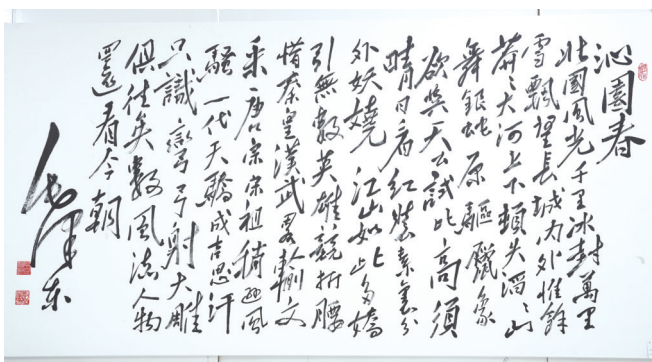 沁園春
北國風光千里冰封萬里
雪飄望長城内外惟餘
莽〻大河上下頓失滔〻山
舞銀蛇原驅臘象
欲與天公試比高須
晴日看紅裝素裹分
外妖嬈江山如此多嬌
引無數英雄競折腰
惜秦皇漢武畧輸文
采唐宗宋祖稍遜風
騷一代天驕成吉思汗
只識彎弓射大雕
俱往矣數風流人物
還看今朝
毛澤东